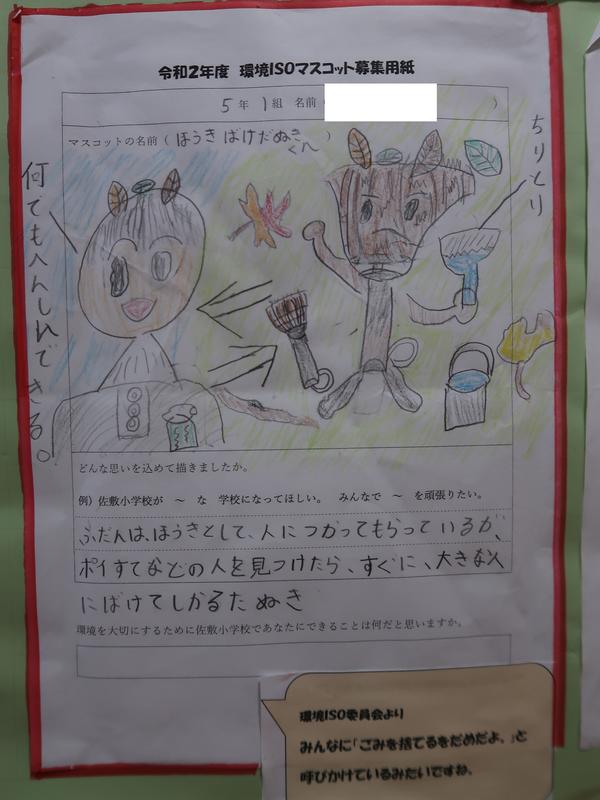 令和2年度 環境ISOマスコット募集用紙
5年 1組 名前( )
マスコットの名前(ほうきばけだぬきくん)
ちりとり
何でもへんしんできる。
どんな思いを込めて描きましたか。
例)佐敷小学校が ～ な 学校になってほしい。 みんなで ～ を頑張りたい。
ふだんは、ほうきとして、人につかってもらっているが、
ポイすてなどの人を見つけたら、すぐに、大きな人
にばけてしかるたぬき
環境を大切にするために佐敷小学校であなたにできることは何だと思いますか。
環境ISO委員会より
みんなに「ごみを捨てるをだめだよ。」と
呼びかけているみたいですね。